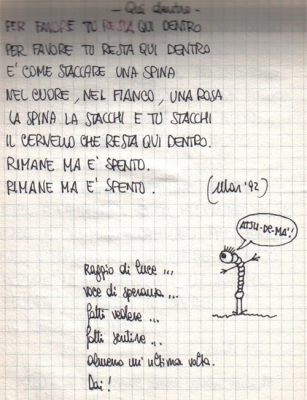 - Qui dentro -
PER FAVORE TU RESTA QUI DENTRO
PER FAVORE TU RESTA QUI DENTRO
E' COME STACCARE UNA SPINA
NEL CUORE, NEL FIANCO, UNA ROSA
LA SPINA LA STACCHI E TU STACCHI
IL CERVELLO CHE RESTA QUI DENTRO.
RIMANE MA E' SPENTO.
RIMANE MA E' SPENTO. (Mar '92)
ATSU-DE-MA'!
Raggio di luce ...
voce di speranza ...
fatti vedere ...
fatti sentire ...
almeno un'ultima volta.
Dai!